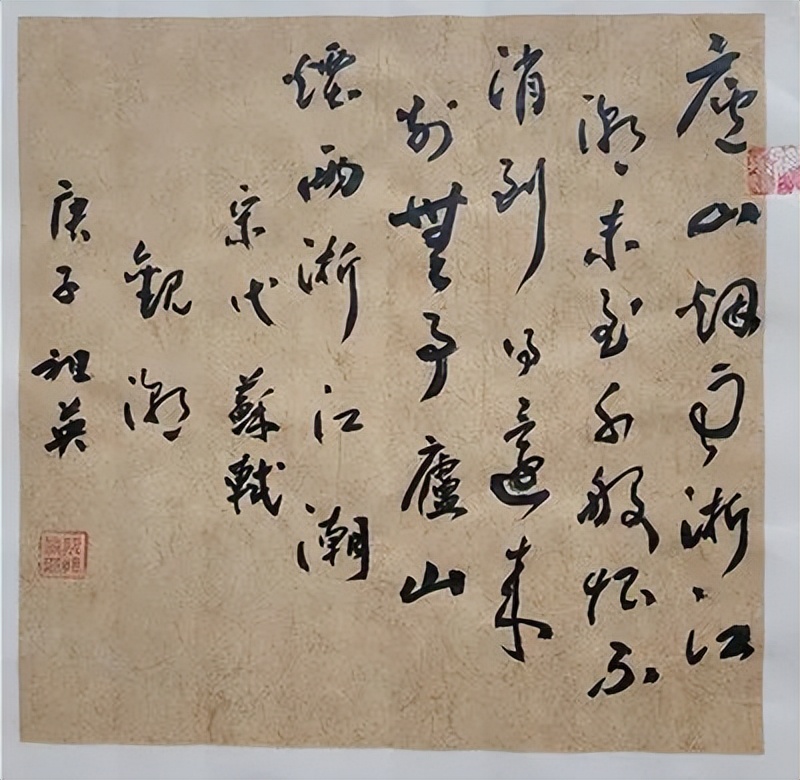 廬山烟雨浙江
潮未至千般恨不
消到得還来
别無事廬山
煙雨浙江潮
宋代蘇軾
觀潮
庚子祖英